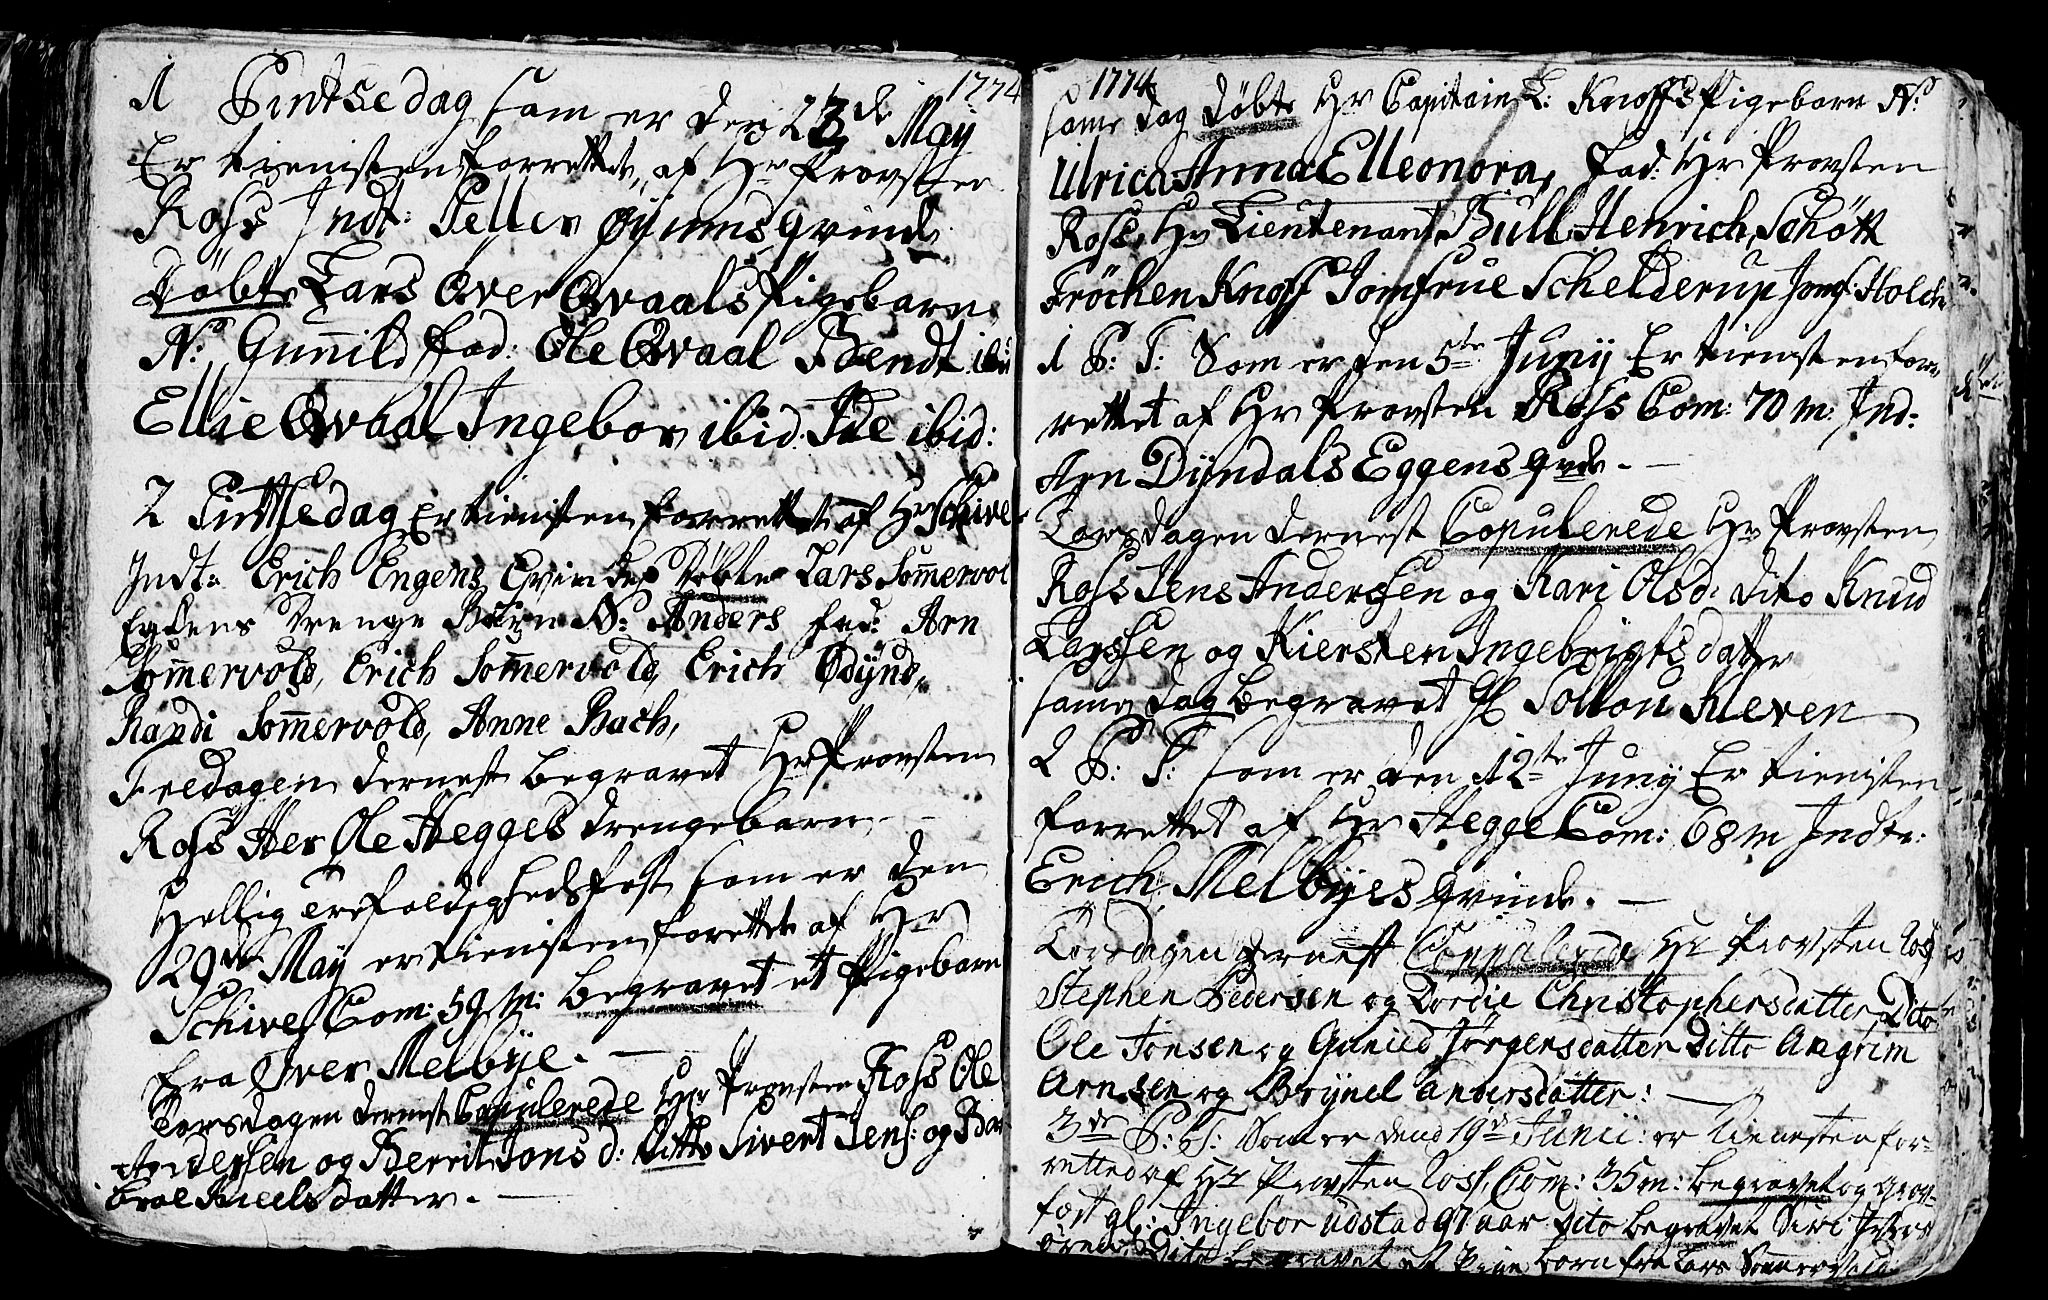 1774
1 Pintse dag som er den 23de May
Er tienisten forrettet af Hr Provsten
Ross Indt: Peller Øyumsqvinde
Döbte Lars Over Qvaals Pigebarn
N: Gunnild fad: Ole Qvaal Bendt ibid
Ellie Qvaal Ingebor ibid. Ide ibid:
2 Pintsedag Er tienisten forrettet af Hr Schive
Indt: Erich Engens Qvinde Döbte Lars Sommervol
Eydens Drenge Barn N: Anders fad: Arn
Sommervold, Erich Sommervold, Erich Ødynd,
Randi Sommervold, Anne Bach,
Fredagen dernest begravet Hr Provsten
Ross Her Ole Hegges drengebarn
Hellig trefoldigheds fest som er den
29de May er tienisten forettet af Hr
Schive Com: 59 m: begravet et Pigebarn
fra Over Melbye.
Torsdagen dernest Copulerede Hr Provsten Ross Ole
Andersen og Berrit Jons d: Ditto Sivert Jens: og Bar
broe Nieels datter.
1774
same dag döbte Hr Capitain L: Knoffs Pigebarn N:
Ulrica Anna Elleonora, fad: Hr Provsten
Ross, Hr Lieutenant Bull Henrich Schøtt
Fröchen Knoff Jomfrue Schelderup Jomf: Holch
1 S: T: Som er den 5te Juny Er tienisten for
rettet af Hr Provsten Ross Com: 70 m: Ind:
Arn Dyndals Eggens qvde.
Torsdagen dernest Copulerede Hr Provsten
Ross Jens Anderssen og Kari Olsd: Dito Knud
Larssen og Kiersten Ingebrigtsdatter
same dag begravet gl Sollou Kleven
2 S: T: som er den 12te Juny Er tienisten
forrettet af Hr Hegge Com: 68 m Indt:
Erich Melbyes qvinde.
Torsdagen dernest Copulerede Hr Provsten Ross
Stephen Pedersen og Dordie Christophersdatter Dito
Ole Jonsen og Guniled Jørgensdatter Ditto Angrim
Arnsen og Brynel andersdatter:
3de S: T: Som er dend 19de Junii: er tienesten for-
retted af Hr Provsten Ross, Com: 35 m: begravet og
fæst gl: Ingebor udstad 97 aar dito begravet Siri
Dito begravet et Pige barn fra Lars Sommervold